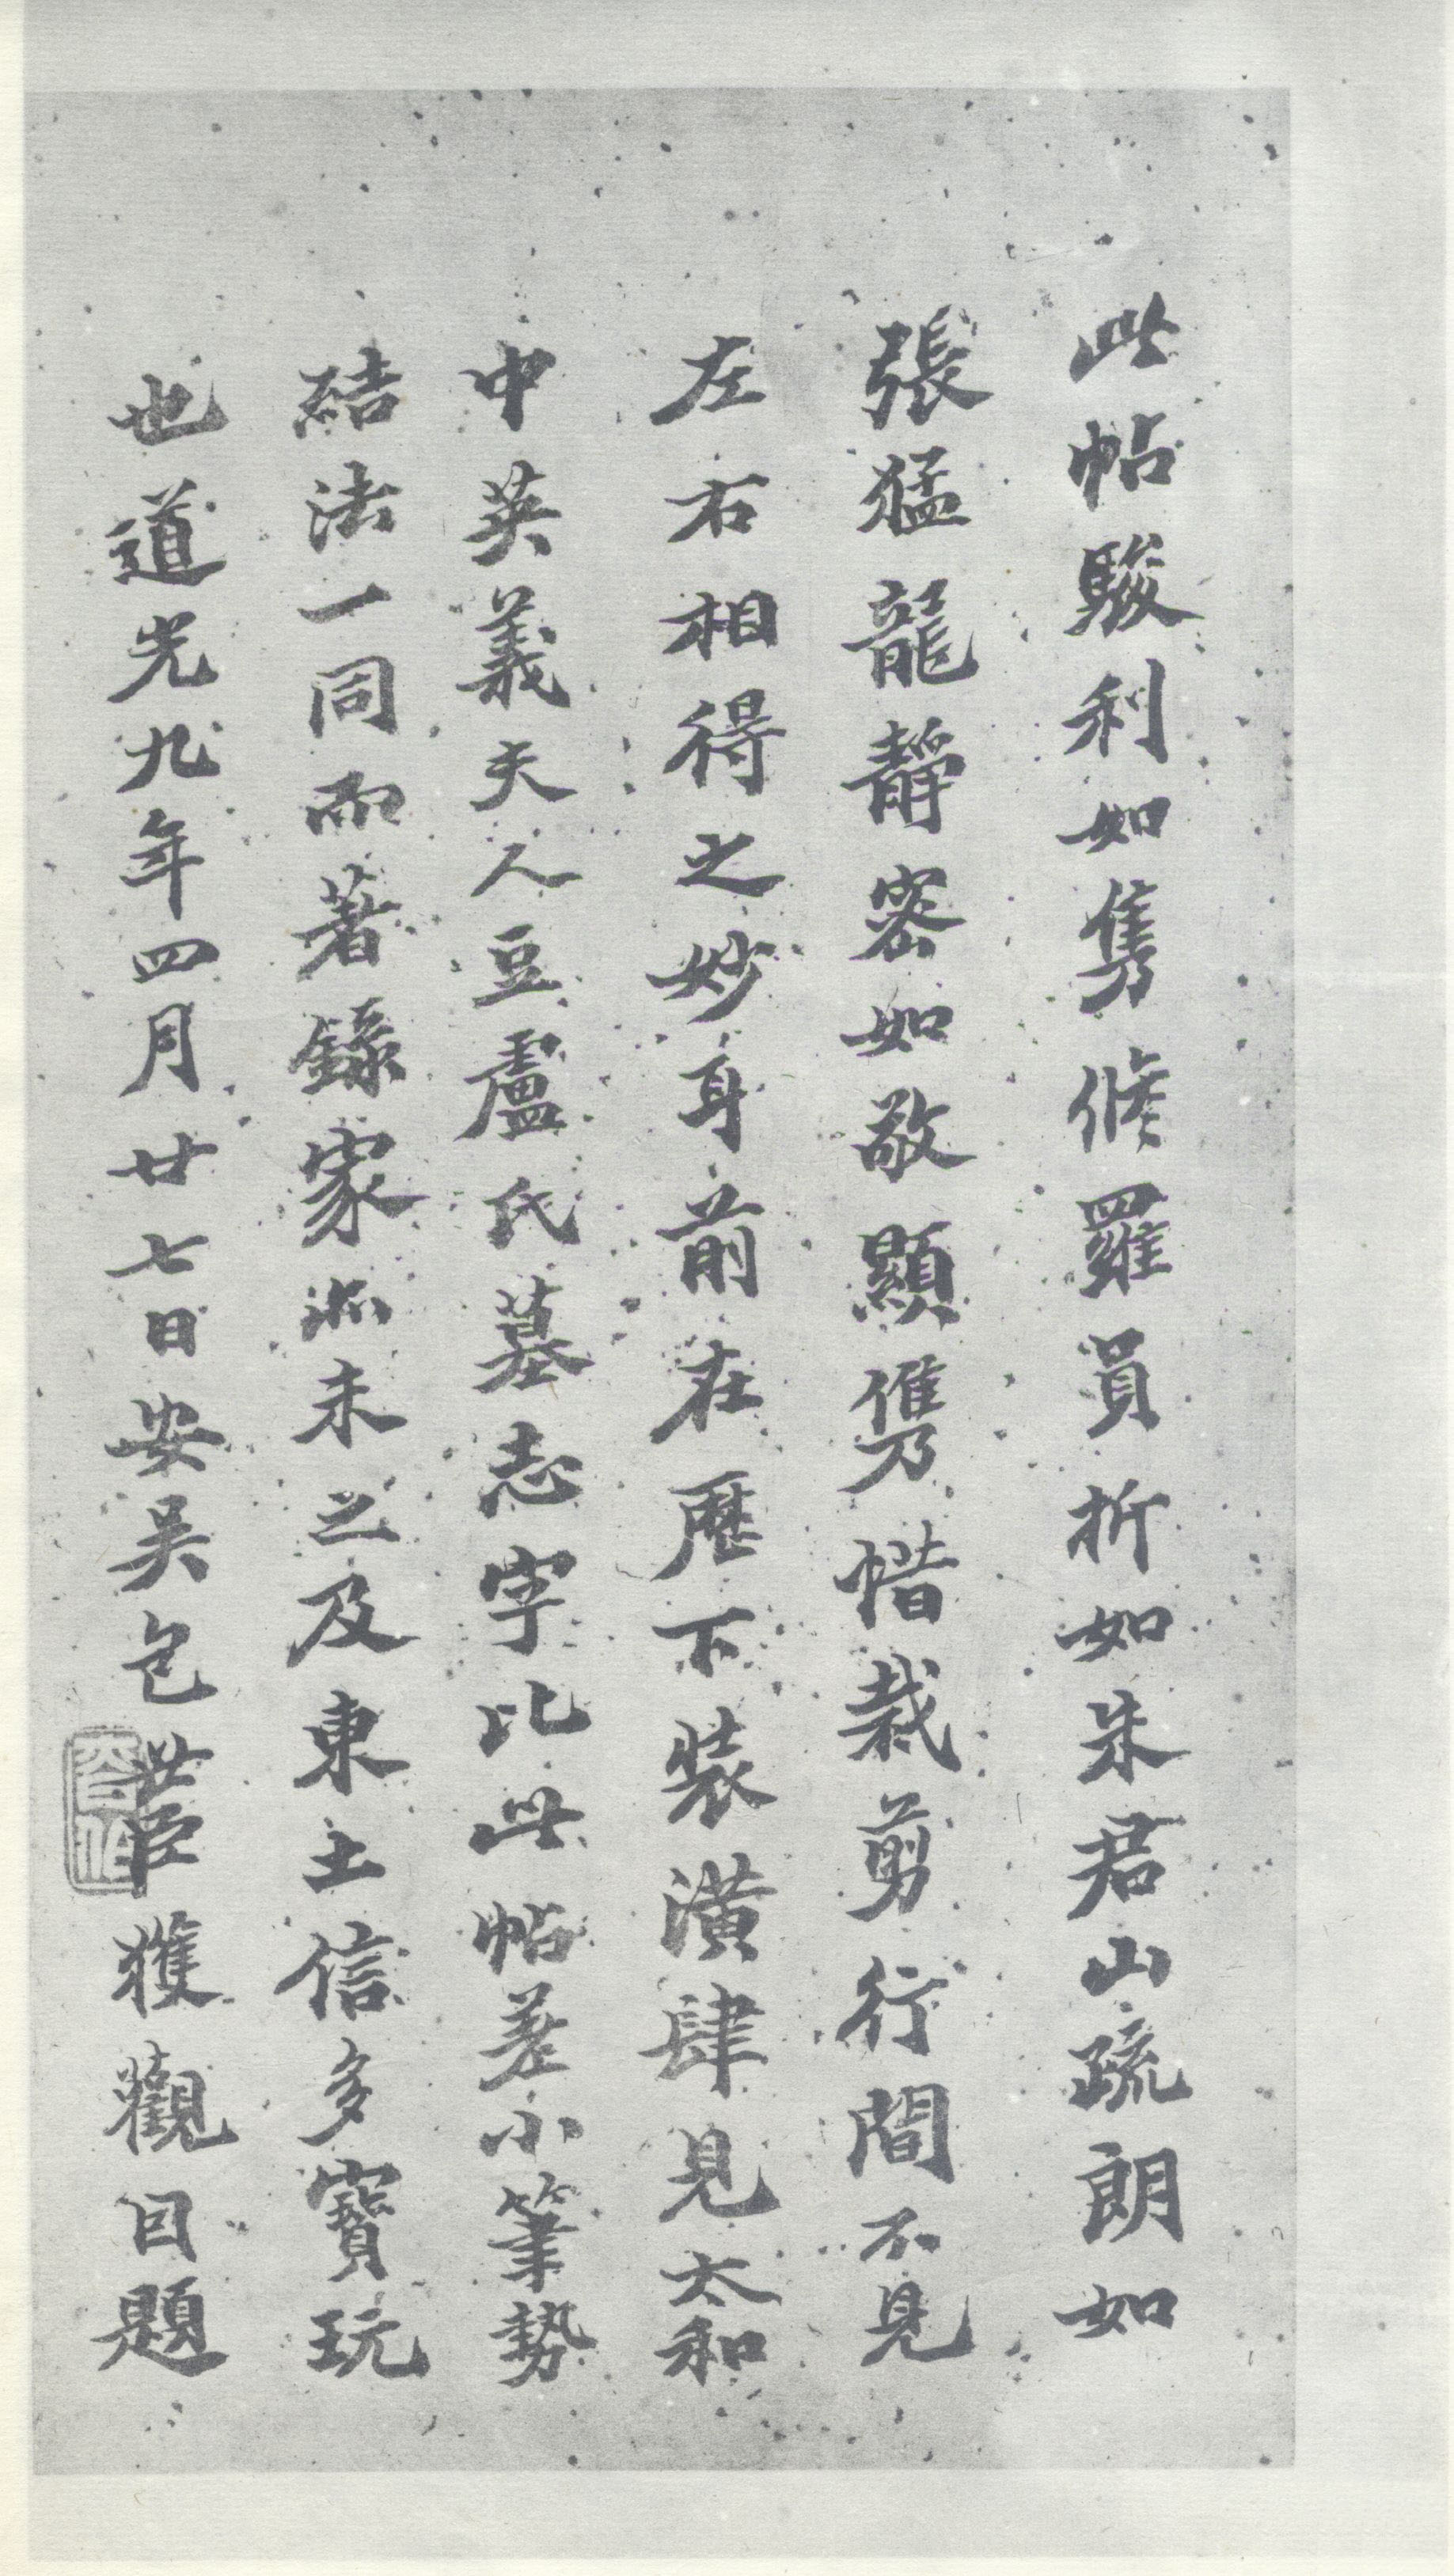 此帖駿利如雋脩羅員折如朱君山疏朗如
張猛龍靜密如敬顯儁惜裁剪行間不見
左右相得之妙耳前在歷下裝潢肆見太和
中英義夫人豆盧氏墓志字比此帖差小筆勢
結法一同而著錄家㳂未之及東土信多寶玩
也道光九年四月廿七日安吳包世臣獲觀因題